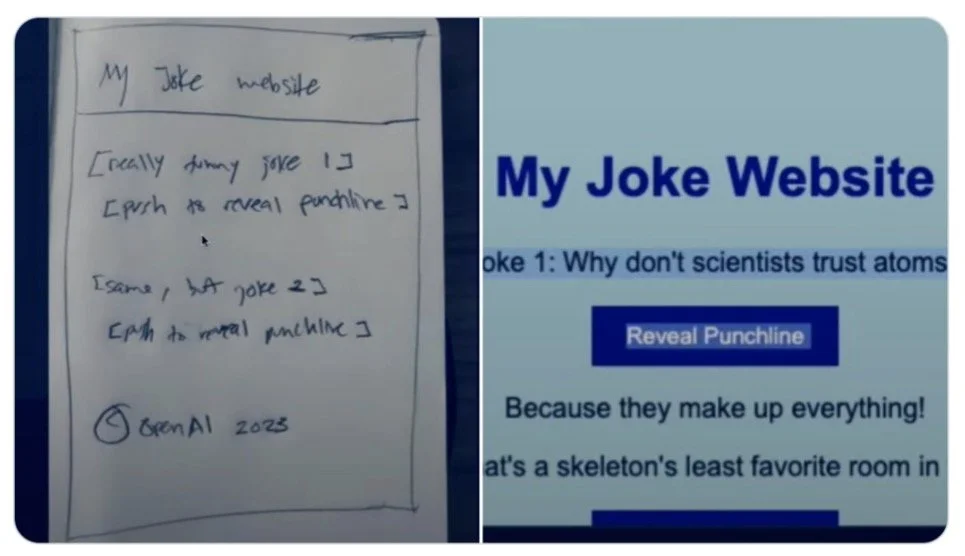 My Joke website
[really funny joke 1]
[push to reveal punchline]
[same, but joke 2]
[push to reveal punchline]
© OpenAI 2023
My Joke Website
oke 1: Why don't scientists trust atoms
Reveal Punchline
Because they make up everything!
at's a skeleton's least favorite room in